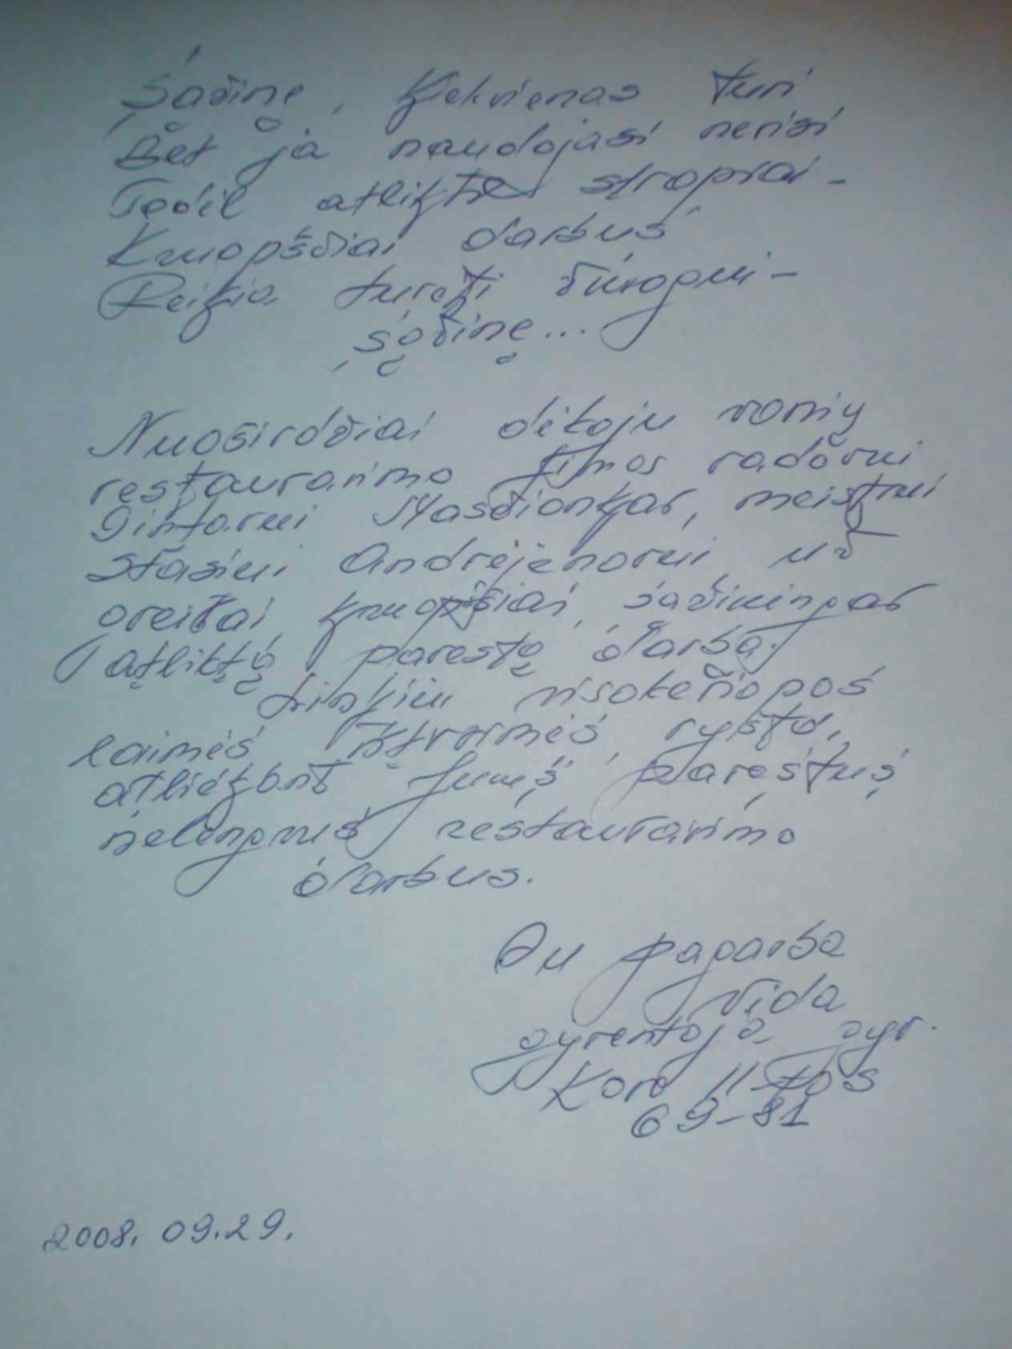 Sąžinę, kiekvienas turi
Bet ja naudojasi ne visi
Todėl atlikti stropiai -
Kruopščiai darbus
Reikia turėti žmogui -
sąžinę...
Nuoširdžiai dėkoju vonių
restauravimo firmos vadovui
Gintarui, meistrui
Stasiui už
greitai, kruopščiai, sąžiningai
atliktą pavestą darbą.
Linkiu visokeriopos
laimės, ištvermės, ryžto,
atliekant Jums pavestus
nelengvus restauravimo
darbus.
Su pagarba
Vida
gyventoja gyv.
69-81
2008. 09.29.